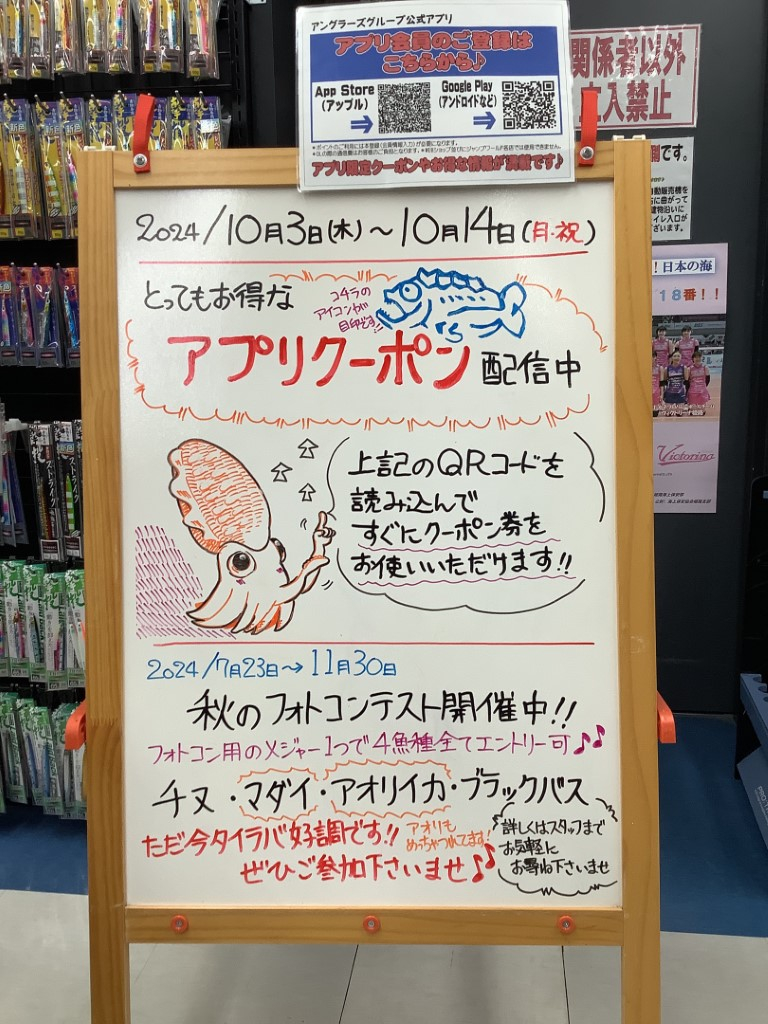 アングラーズグループ公式アプリ
アプリ会員のご登録は
こちらから♪
App Store
(アップル)
Google Play
(アンドロイドなど)
アプリ限定クーポンやお得な情報が満載です♪
関係者以外
立入禁止
側です。
自動販売機を
右に曲がって
建物沿いに
イレ入口が
ざいます。
!日本の海
18番!!
Victorina
2024/10月3日(木)~10月14日(月・祝)
とってもお得な
コチラの
アイコンが
目印です!!
アプリクーポン配信中
上記のQRコードを
読み込んで
すぐにクーポン券を
お使いいただけます!!
2024/7月23日→11月30日
秋のフォトコンテスト開催中!!
フォトコン用のメジャー1つで4魚種全てエントリー可♪♪
チヌ・マダイ・アオリイカ・ブラックバス
ただ今タイラバ好調です!!
アオリも
めっちゃつれてます!
ぜひご参加下さいませ♪♪
詳しくはスタッフまで
お気軽に
お尋ね下さいませ